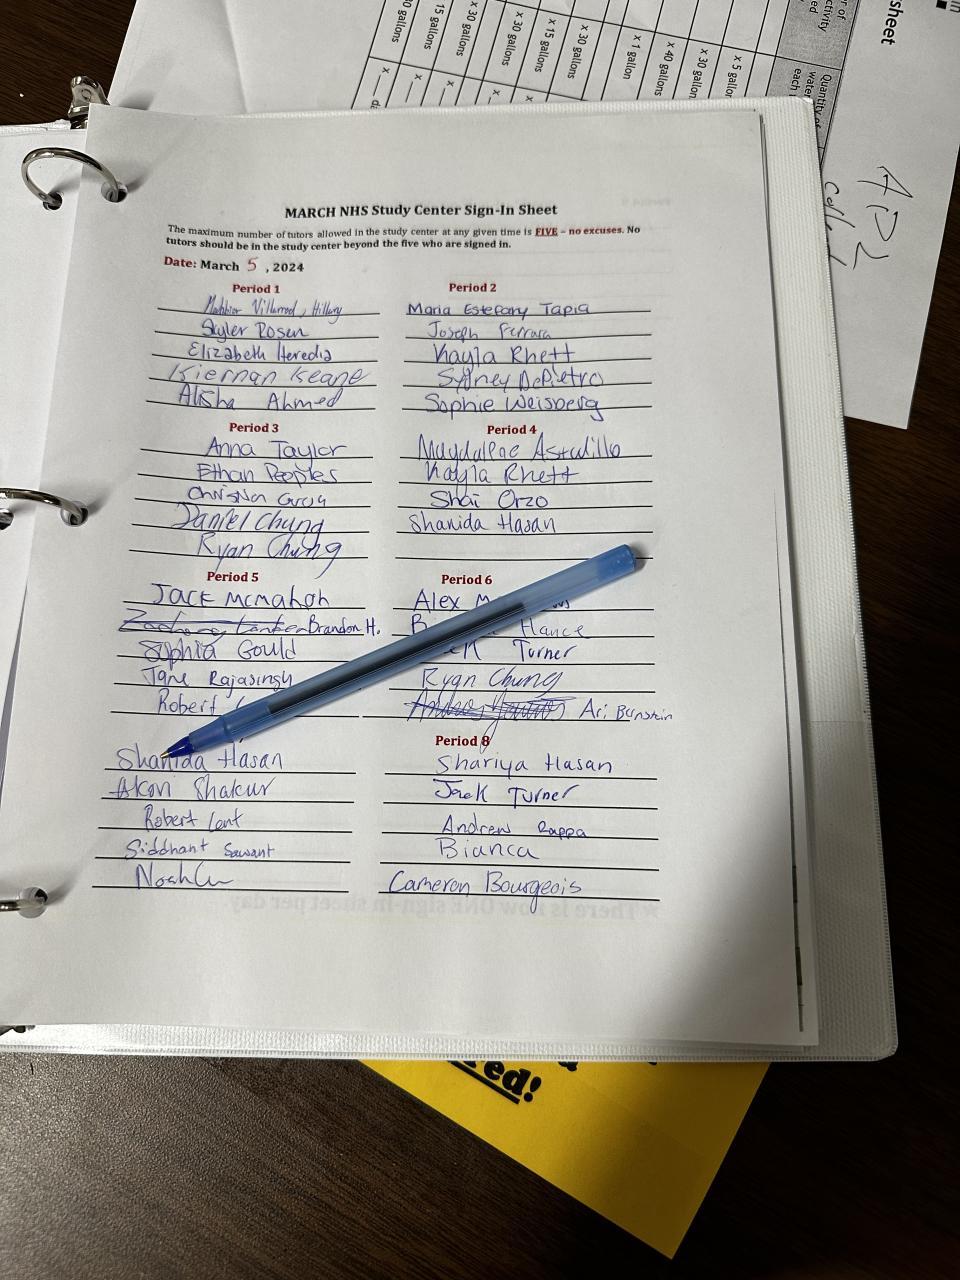 sheet
x 5 gallons
x 30 gallons
x 40 gallons
x 1 gallon
x 30 gallons
x 15 gallons
x 30 gallons
x 30 gallons
15 gallons
gallons
Quantity of
each
AP2
MARCH NHS Study Center Sign-In Sheet
The maximum number of tutors allowed in the study center at any given time is FIVE – no excuses. No
tutors should be in the study center beyond the five who are signed in.
Date: March 5, 2024
Period 1
Villarreal, Hillary
Skyler Rosen
Elizabeth Heredia
Kiernan Keane
Alisha Ahmed
Period 2
Maria Estefany Tapia
Joseph Ferrara
Kayla Rhett
Sydney DePietro
Sophie Weisberg
Period 3
Anna Taylor
Ethan Peoples
Daniel Chung
Ryan Chung
Period 4
Magdalene Astudillo
Kayla Rhett
Shai Orzo
Shanida Hasan
Period 5
Jack McMahon
Brandon H.
Sophia Gould
Jane Rajasingh
Robert
Period 6
Alex
Hance
Turner
Ryan Chung
Ari Bernstein
Shanida Hasan
Akon Shakur
Robert Lent
Siddhant Sawant
Period 8
Shariya Hasan
Jack Turner
Andrew Rappa
Bianca
Cameron Bourgeois
There is now ONE sign-in sheet per day.